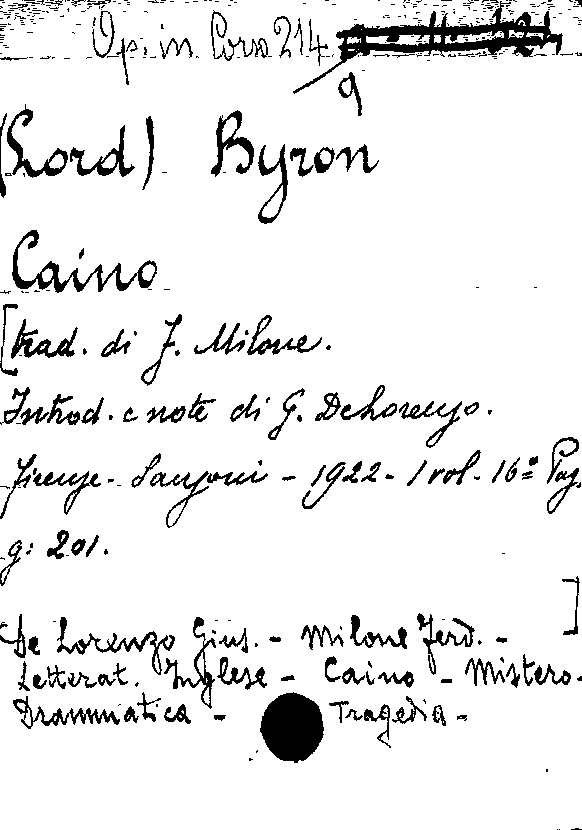 Op. in Corso 214
9
(Lord) Byron
Caino
[trad. di F. Milone.
Introd. e note di G. De Lorenzo.
Firenze - Sansoni - 1922 - 1 vol. 16º Pag.
g: 201.
]
De Lorenzo Gius. - Milone Ferd. -
Letterat. Inglese - Caino - Mistero -
Drammatica - Tragedia -